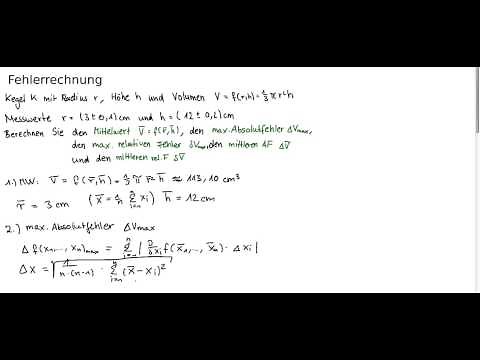 Fehlerrechnung
Kegel K mit Radius r, Höhe h und Volumen V = f(r,h) = 1/3 π r² h
Messwerte r = (3 ± 0,1) cm und h = (12 ± 0,2) cm
Berechnen Sie den Mittelwert V̄ = f(r̄, h̄), den max. Absolutfehler ΔVmax,
den max. relativen Fehler δVmax, den mittleren AF ΔV̄
und den mittleren rel. F δV̄
1.) MW: V̄ = f(r̄, h̄) = 1/3 π r̄² h̄ ≈ 113,10 cm³
r̄ = 3 cm (x̄ = 1/n Σ xi) h̄ = 12 cm
2.) max. Absolutfehler ΔVmax
Δ f(x1, ..., xn)max = Σ | ∂/∂xi f(x̄1, ..., x̄n) · Δxi |
Δx = √(1/(n·(n-1)) · Σ (x̄ - xi)²)